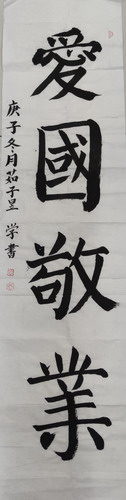 愛國敬業
庚子冬月茹子昱学書